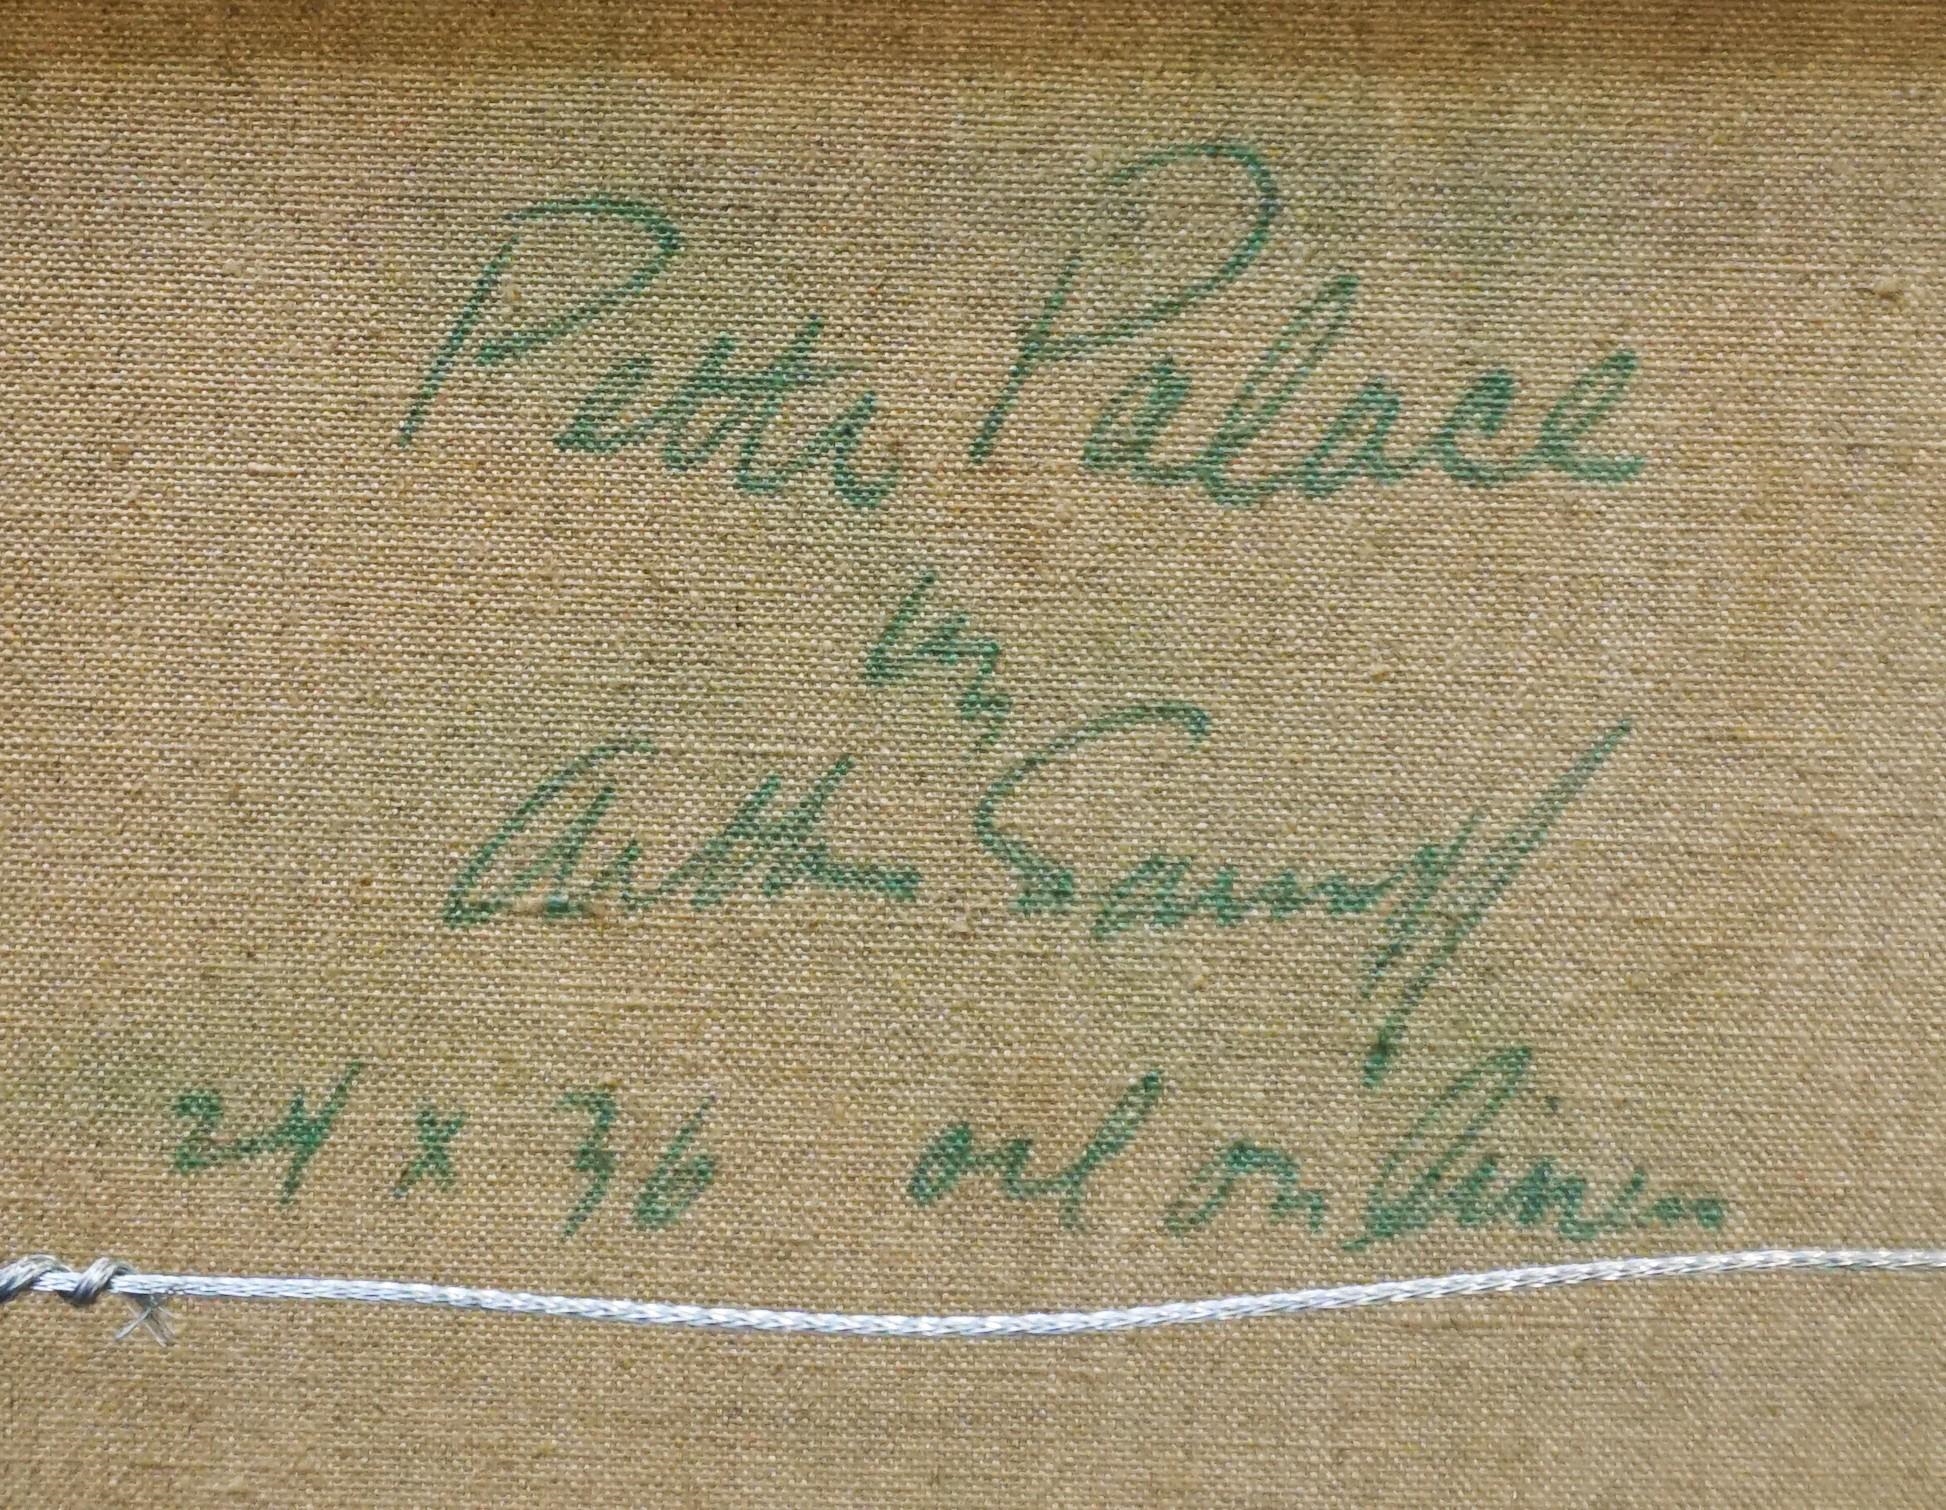 Petti Palace
by
Arthur Sarnoff
24 x 36 oil on linen